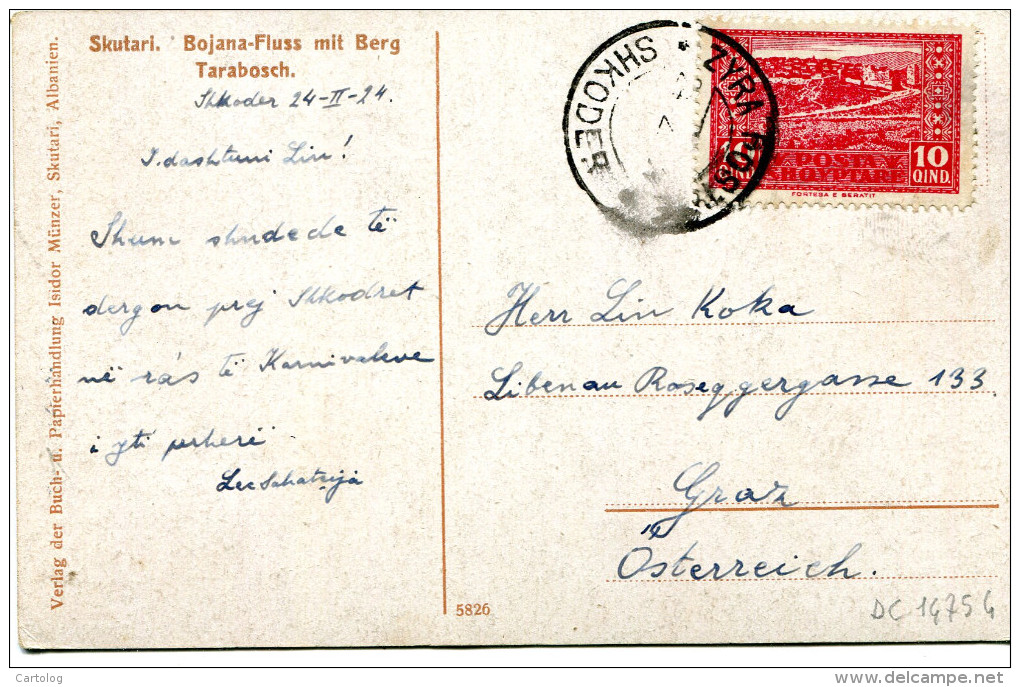 Skutari. Bojana-Fluss mit Berg
Tarabosch.
Shkoder 24-II-24.
I dashtuni Lin!
Shum shndede të
dergon prej Shkodret
në ras të Karnivaleve
i yti perherë
Lec Sahatçija
Verlag der Buch- u. Papierhandlung Isidor Münzer, Skutari, Albanien.
5826
ZYRA POSTARE
SHKODER
10
QIND.
POSTA
SHQYPTARE
10
QIND.
FORTESA E BERATIT
Herr Lin Koka
Libenau Roseggergasse 133
Graz
Österreich.
DC 14754
Cartolog
delcampe.net